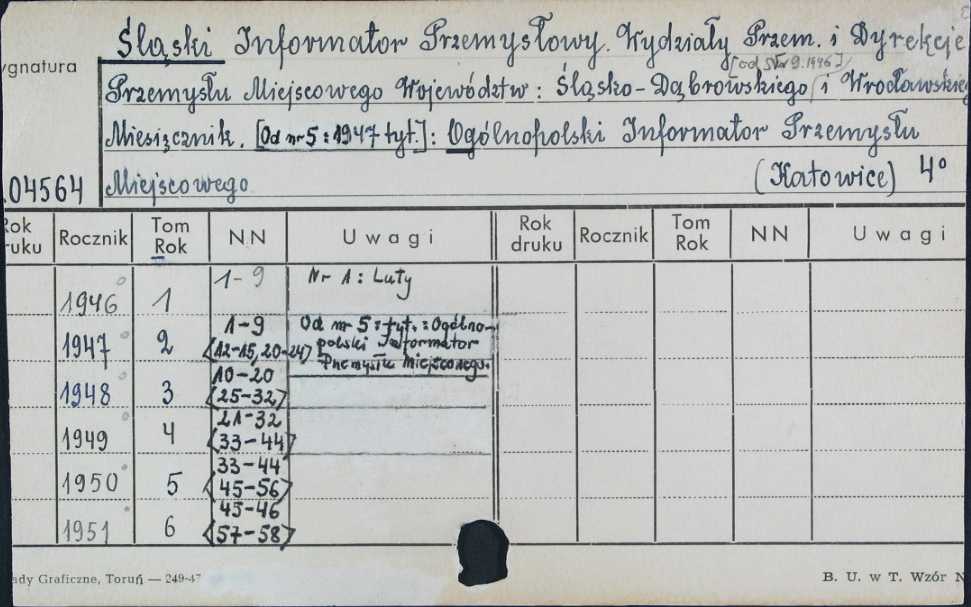 Śląski Informator Przemysłowy. Wydziały Przem. i Dyrekcje
ygnatura
[od SVnr 9.1946]
Przemysłu Miejscowego Województw: Śląsko-Dąbrowskiego i Wrocławskieg
Miesięcznik. [Od nr 5:1947 tyt.]: Ogólnopolski Informator Przemysłu
.04564 Miejscowego (Katowice) 4°
Rok druku Rocznik Tom Rok NN Uwagi Rok druku Rocznik Tom Rok NN Uwagi
1946 1 1-9 Nr 1: Luty
1947 2 1-9 <12-15, 20-24> Od nr 5: tyt.: Ogólno-
polski Informator
Przemysłu Miejscowego.
1948 3 10-20 <25-32>
1949 4 21-32 <33-44>
1950 5 33-44 <45-56>
1951 6 45-46 <57-58>
ady Graficzne, Toruń — 249-47 B. U. w T. Wzór N